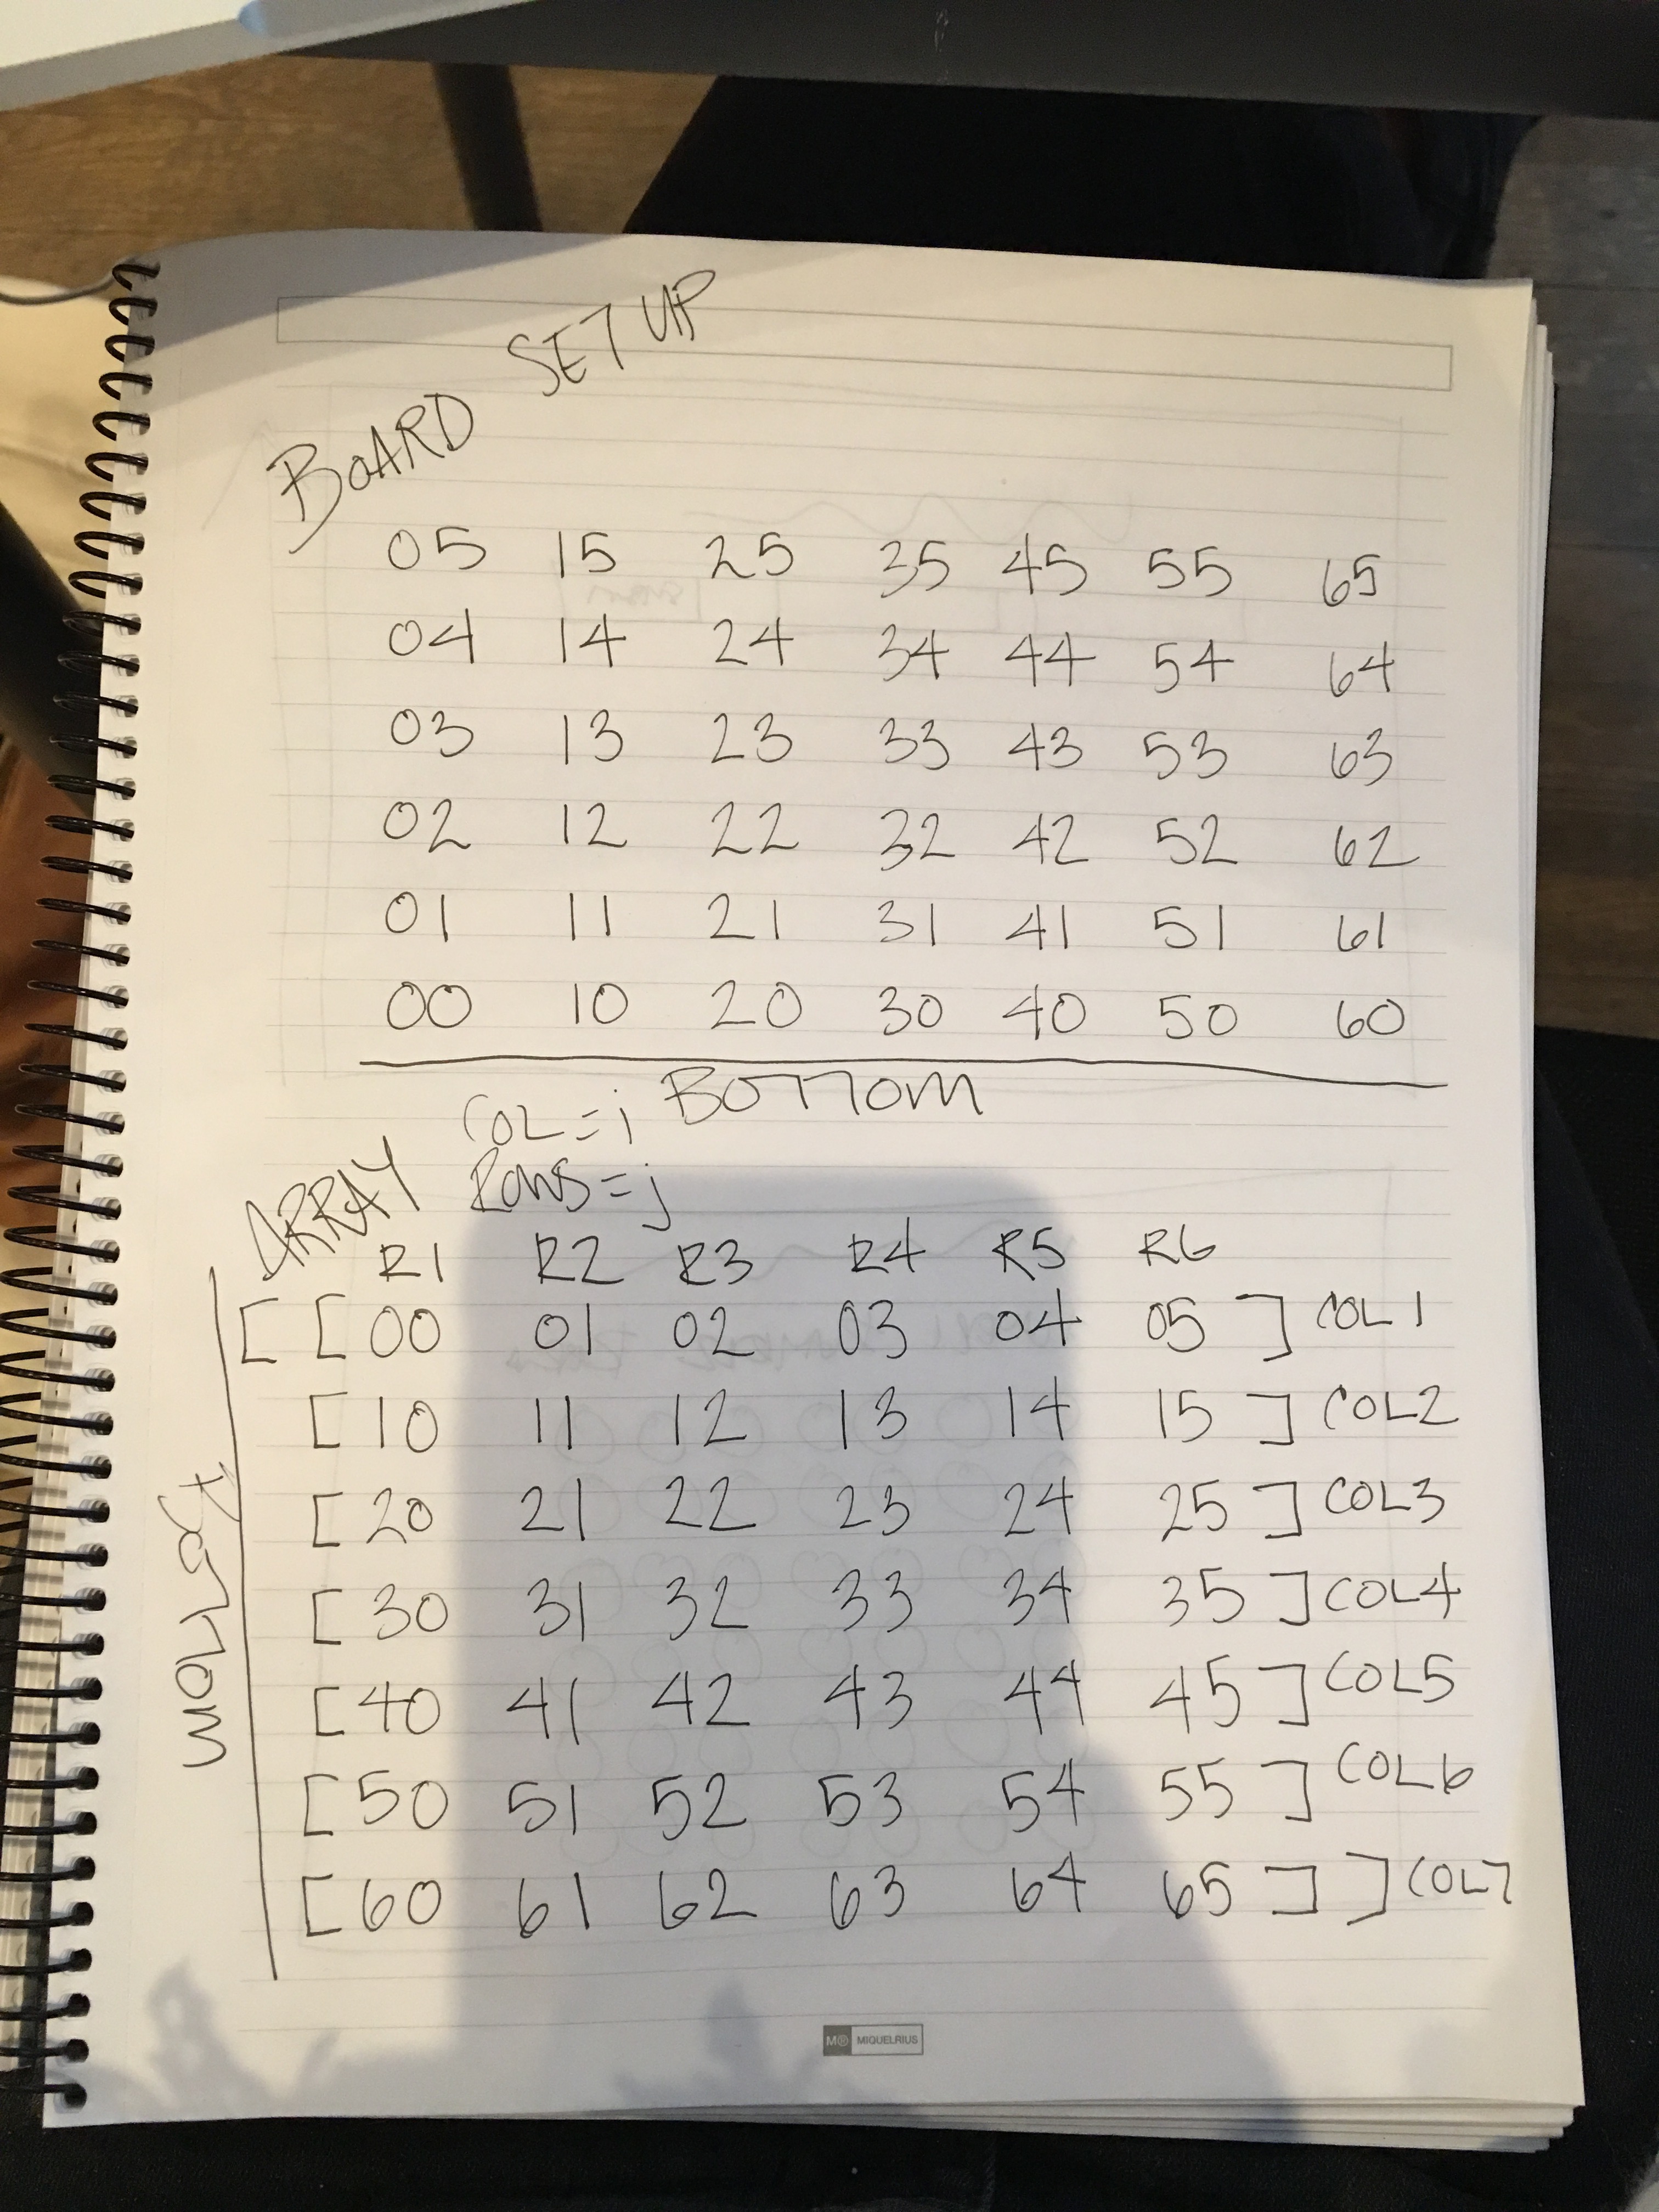 BOARD SET UP
05 15 25 35 45 55 65
04 14 24 34 44 54 64
03 13 23 33 43 53 63
02 12 22 32 42 52 62
01 11 21 31 41 51 61
00 10 20 30 40 50 60
BOTTOM
COL = i
ROWS = j
ARRAY
R1 R2 R3 R4 R5 R6
[ [ 00 01 02 03 04 05 ] COL 1
[ 10 11 12 13 14 15 ] COL2
[ 20 21 22 23 24 25 ] COL3
[ 30 31 32 33 34 35 ] COL4
[ 40 41 42 43 44 45 ] COL5
[ 50 51 52 53 54 55 ] COL6
[ 60 61 62 63 64 65 ] ] COL7
BOTTOM
MR MIQUELRIUS